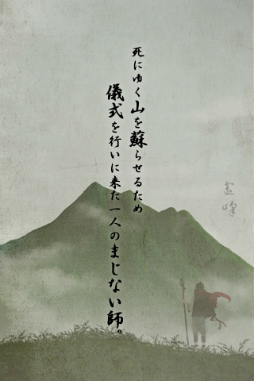 死にゆく山を蘇らせるため
儀式を行いに来た一人のまじない師。